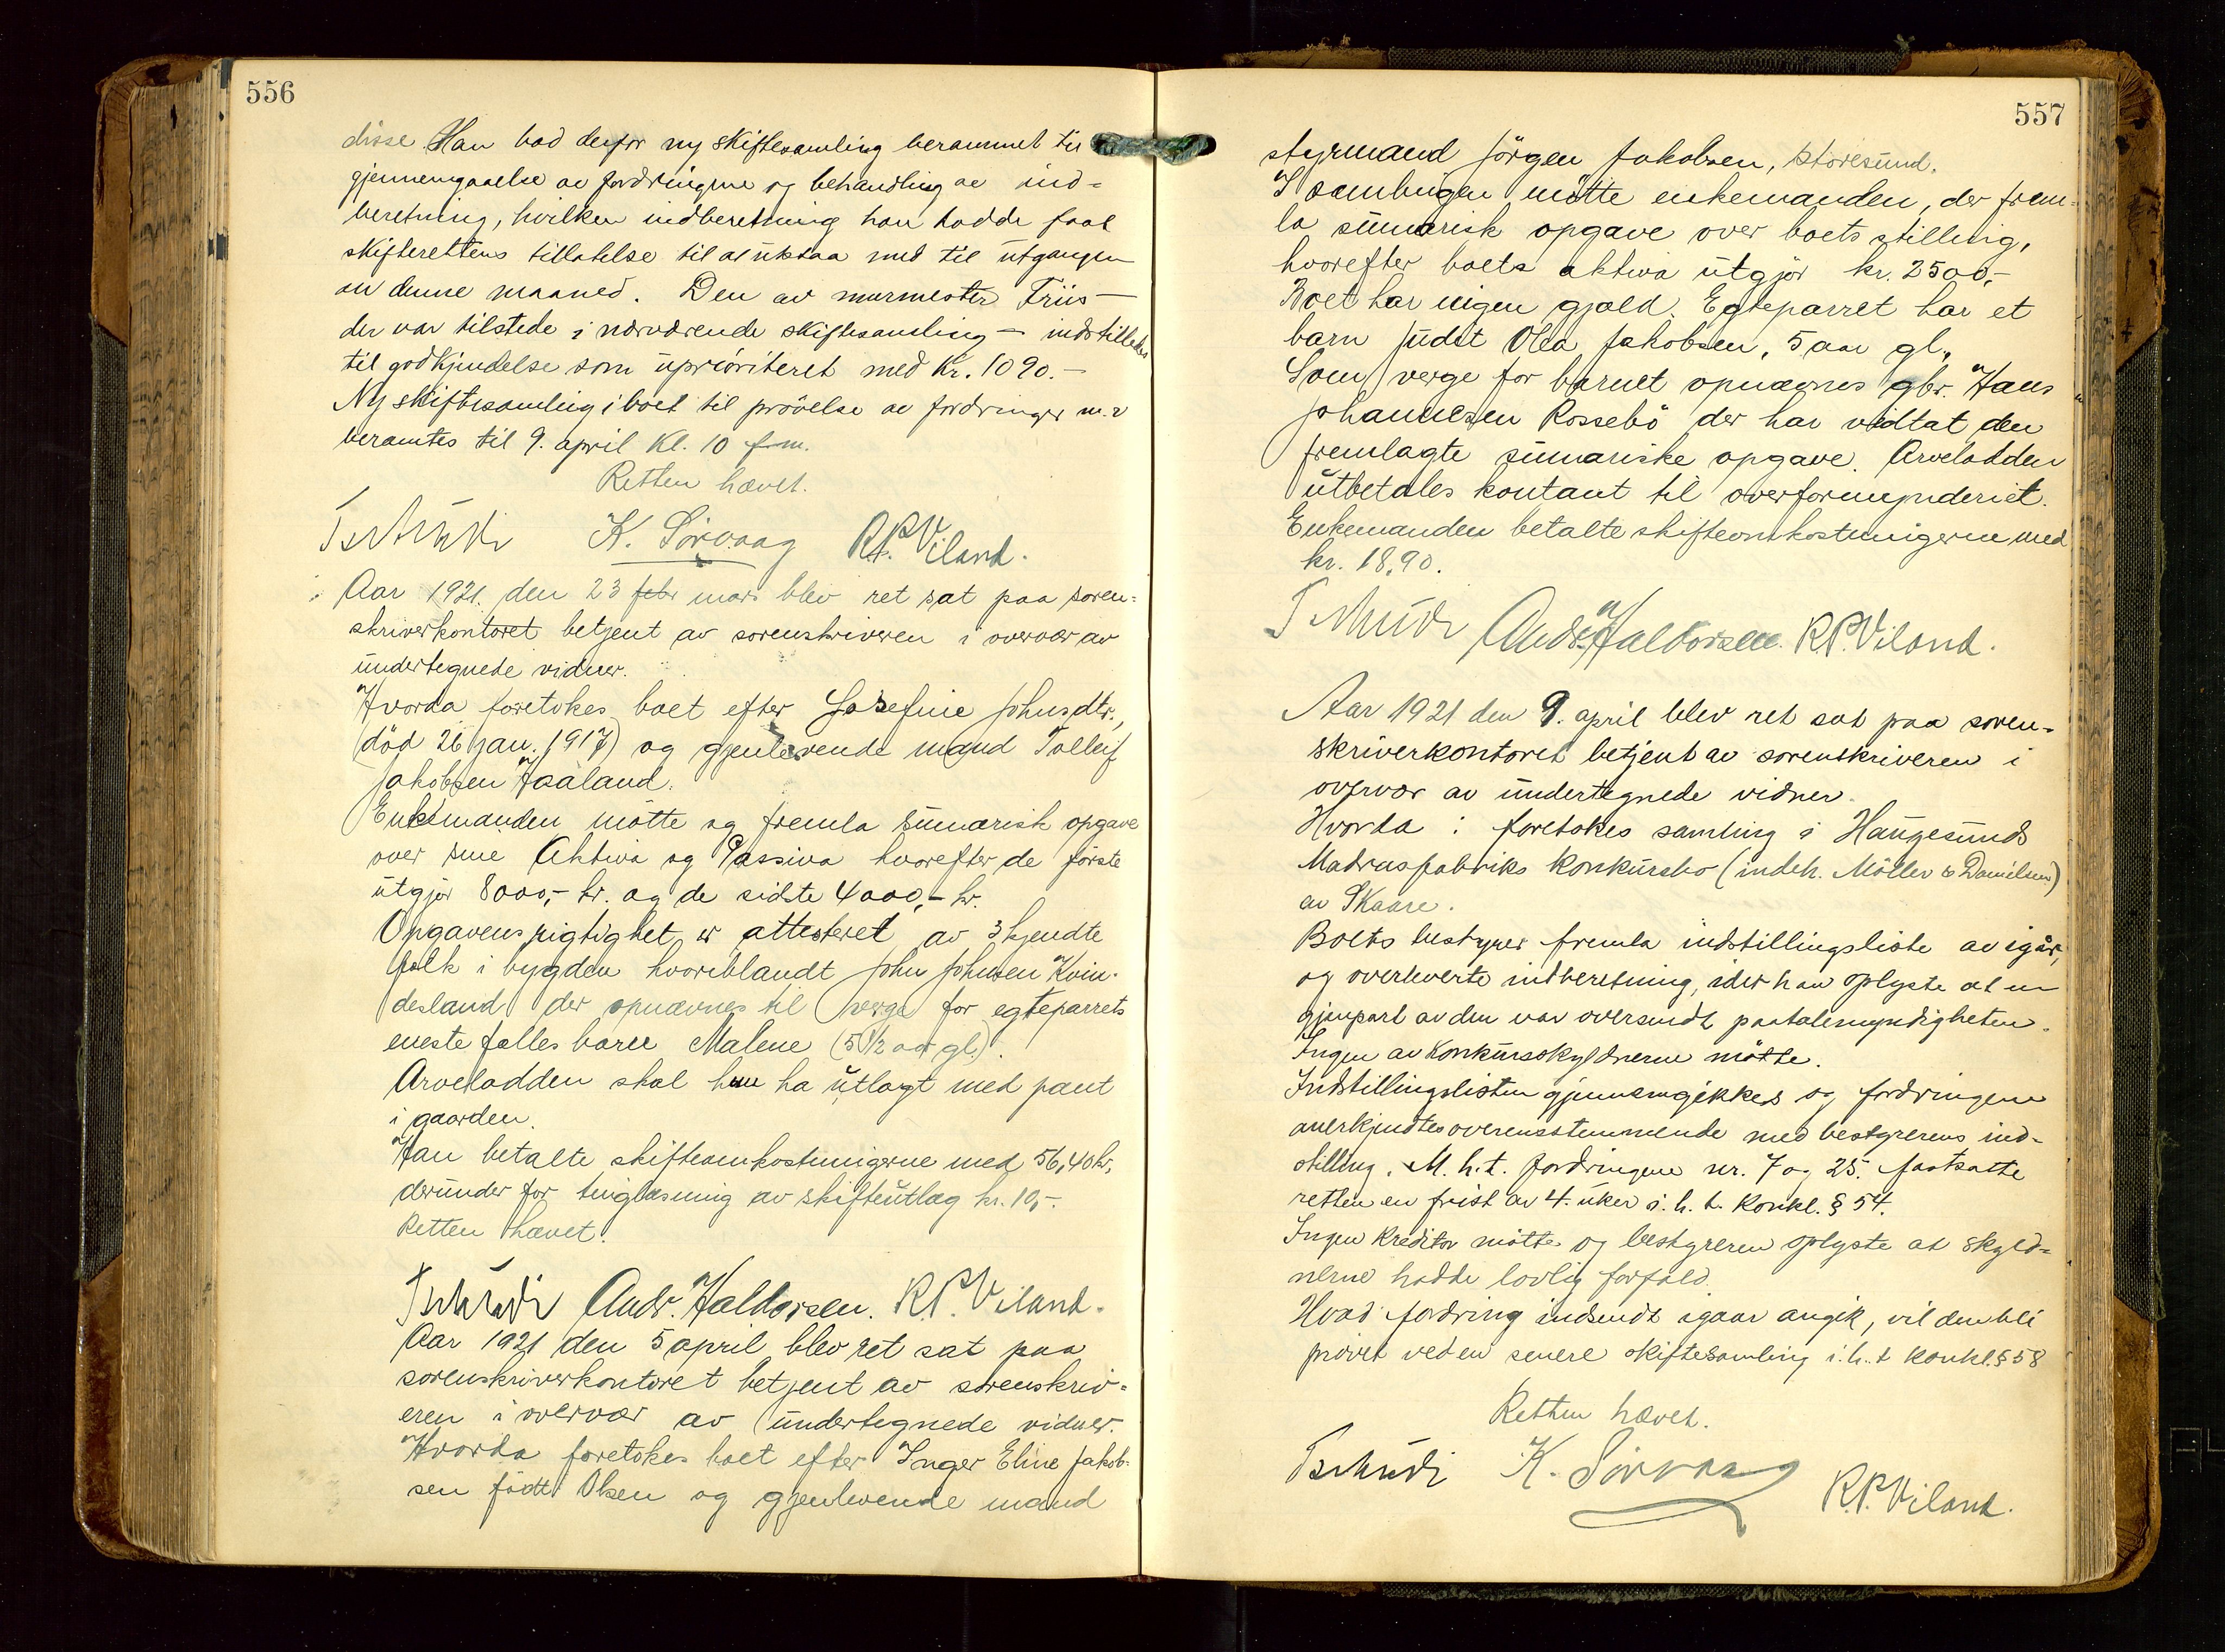 556
disse Han bad derfor ny skiftesamling berammet til
gjennemgaaelse av fordringerne og behandling av ind-
beretning, hvilken indberetning han hadde faat
skifterettens tillatelse til at utstaa med til utgangen
av denne maaned. Den av murmester Friis -
der var tilstede i nærværende skiftesamling - indstilledes
til godkjendelse som uprioriteret med Kr. 1090.-
Ny skiftesamling i boet til prøvelse av fordringer m.v
beramtes til 9. april Kl. 10 fm.
Retten hævet.
Tschudi K. Sörvaag R.P. Viland.
Aar 1921. den 23 febr mars blev ret sat paa soren=
skriverkontoret betjent av sorenskriveren i overvær av
undertegnede vidner.
Hvorda foretokes boet efter Josefine Johnsdtr.,
(död 26 jan. 1917) og gjenlevende mand Tolleif
Jakobsen Haaland.
Enkemanden mötte og fremla sumarisk opgave
over sine Aktiva og Passiva hvorefter de förste
utgjör 8000,- kr. og de sidste 4000,- kr.
Opgavens rigtighet er attesteret av 3 kjendte
folk i bygden hvoriblandt John Johnsen Kvin-
desland der opnævnes til verge for egteparrets
eneste fælles barn Malene (5 1/2 aar gl.).
Arvelodden skal hun ha utlagt med pant
i gaarden.
Han betalte skifteomkostningerne med 56,40 kr,
derunder for tinglæsning av skifteutlæg kr. 10,-.
Retten hævet.
Tschudi Andr. Haldorsen. R.P. Viland.
Aar 1921 den 5 april blev ret sat paa
sorenskriverkontoret betjent av sorenskriv-
eren i overvær av undertegnede vidner.
Hvorda foretokes boet efter Inger Eline Jakob-
sen födt Olsen og gjenlevende mand
557
styrmand Jörgen Jakobsen, Storesund.
I samlingen mötte enkemanden, der frem-
la sumarisk opgave over boets stilling,
hvorefter boets aktiva utgjör kr. 2500,-
Boet har ingen gjæld. Egteparret har et
barn Judit Olea Jakobsen, 5 aar gl.
Som verge for barnet opnævnes gbr. Hans
Johannesen Rossebö der har vedtat den
fremlagte sumariske opgave. Arvelodden
utbetales kontant til overformynderiet.
Enkemanden betalte skifteomkostningerne med
kr. 18,90.
Tschudi Andr. Haldorsen. R.P. Viland.
Aar 1921 den 9. april blev ret sat paa soren-
skriverkontoret betjent av sorenskriveren i
overvær av undertegnede vidner.
Hvorda: foretokes samling i Haugesunds
Madrasfabriks konkursbo (indeh. Möller & Danielsen)
av Skaare.
Boets bestyrer fremla indstillingsliste av igår,
og overleverte indberetning, idet han oplyste at en
gjenpart av den var oversendt paatalemyndigheten.
Ingen av Konkursskyldnerne mötte.
Indstillingslisten gjennemgikkes og fordringene
anerkjendtes overensstemmende med bestyrerens ind-
stilling. M.h.t. fordringene nr. 7 og 25. fastsatte
retten en frist av 4. uker i. h. t. Konkl. § 54.
Ingen kreditor mötte og bestyreren oplyste at skyld-
nerne hadde lovlig forfald.
Hvad fordring indsendt igaar angik, vil den bli
prövet ved en senere skiftesamling i.h.t konkl. § 58
Retten hævet.
Tschudi K. Sörvaag R.P. Viland.